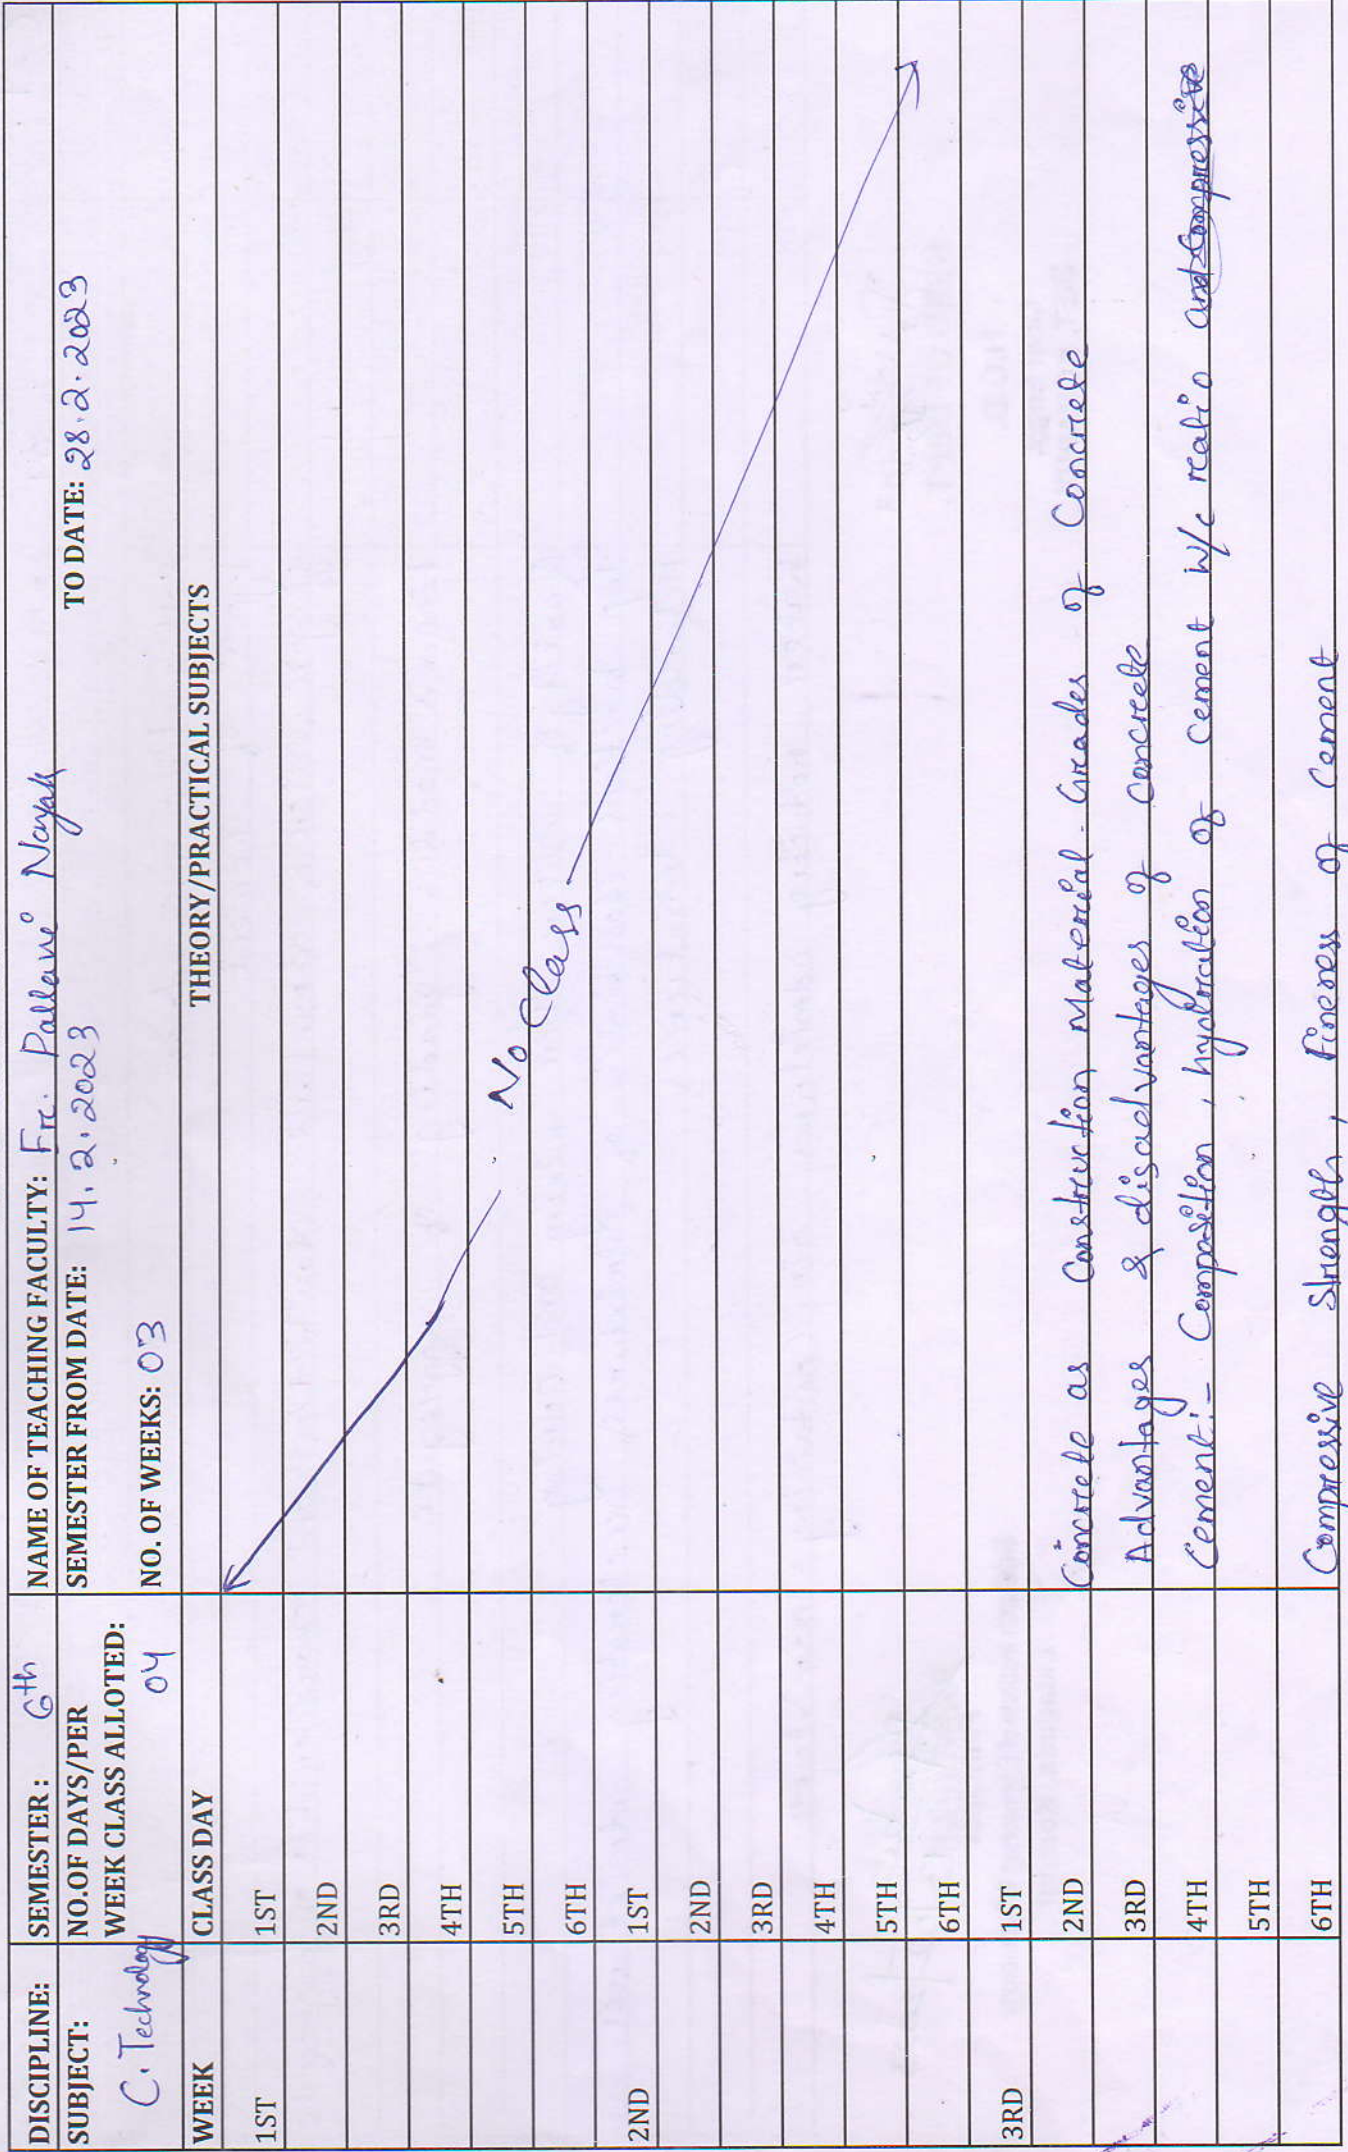 DISCIPLINE: SEMESTER : 6th NAME OF TEACHING FACULTY: Er. Pallavi Nayak
SUBJECT: NO.OF DAYS/PER SEMESTER FROM DATE: 14.2.2023 TO DATE: 28.2.2023
C. Technology WEEK CLASS ALLOTED: 04 NO. OF WEEKS: 03
WEEK CLASS DAY THEORY/PRACTICAL SUBJECTS
1ST 1ST
2ND
3RD
4TH
5TH No Class
6TH
2ND 1ST
2ND
3RD
4TH
5TH
6TH
3RD 1ST
2ND Concrete as Construction Material. Grades of Concrete
3RD Advantages & disadvantages of concrete
4TH Cement:- Composition, hydration of cement W/c ratio and Compressive
5TH
6TH Compressive Strength, Fineness of Cement